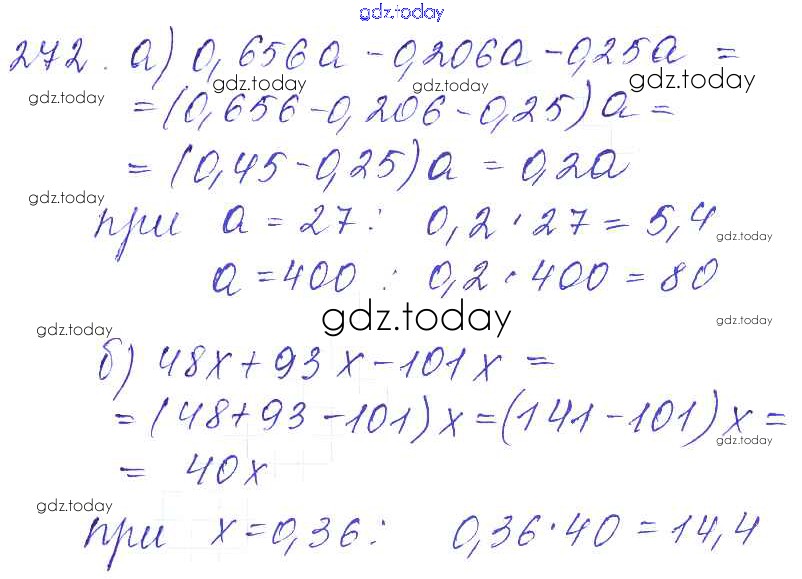 gdz.today
272. а) 0,656a - 0,206a - 0,25a =
gdz.today gdz.today gdz.today
= (0,656 - 0,206 - 0,25) a =
= (0,45 - 0,25) a = 0,2a
gdz.today
при a = 27 : 0,2 · 27 = 5,4
gdz.today
a = 400 : 0,2 · 400 = 80
gdz.today
gdz.today gdz.today
б) 48x + 93x - 101x =
= (48 + 93 - 101) x = (141 - 101) x =
gdz.today
= 40x
gdz.today
при x = 0,36 : 0,36 · 40 = 14,4